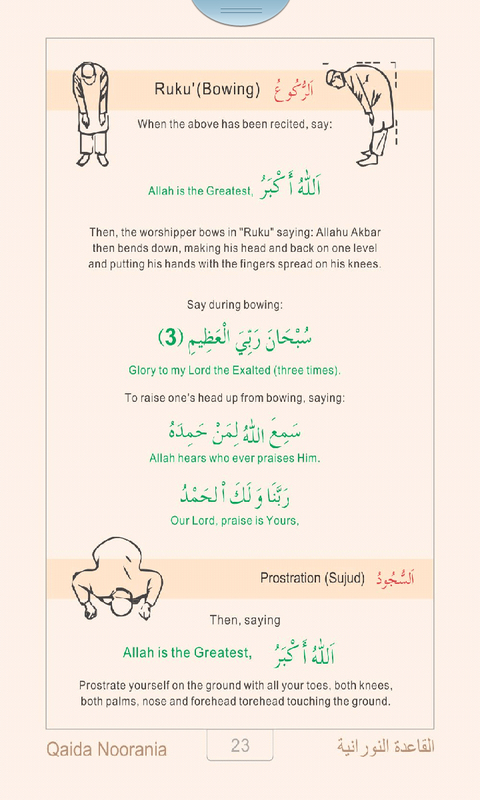 Ruku'(Bowing) اَلرُّكُوعُ
When the above has been recited, say:
Allah is the Greatest, اَللّٰهُ أَكْبَرُ
Then, the worshipper bows in "Ruku" saying: Allahu Akbar
then bends down, making his head and back on one level
and putting his hands with the fingers spread on his knees.
Say during bowing:
سُبْحَانَ رَبِّيَ الْعَظِيمِ (3)
Glory to my Lord the Exalted (three times).
To raise one's head up from bowing, saying:
سَمِعَ اللّٰهُ لِمَنْ حَمِدَهُ
Allah hears who ever praises Him.
رَبَّنَا وَلَكَ الْحَمْدُ
Our Lord, praise is Yours,
Prostration (Sujud) اَلسُّجُودُ
Then, saying
Allah is the Greatest, اَللّٰهُ أَكْبَرُ
Prostrate yourself on the ground with all your toes, both knees,
both palms, nose and forehead torehead touching the ground.
Qaida Noorania 23 القاعدة النورانية